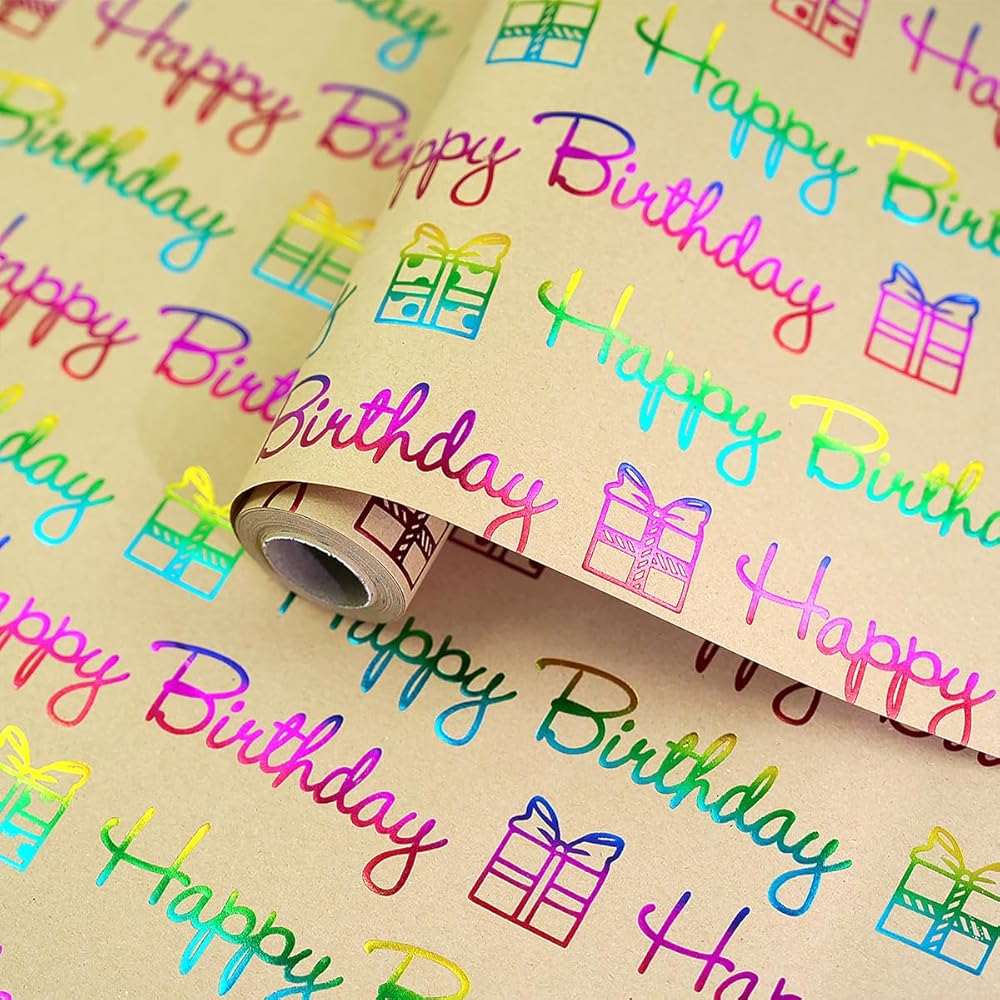 Birthday
Happy Birthday
Happy Birthday
Birthday
Happy Birthday
Happy Birthday
Happy Birthday
Birthday
Happy
Happy Birthday
Happy Birthday
Happy Birthday
Happy